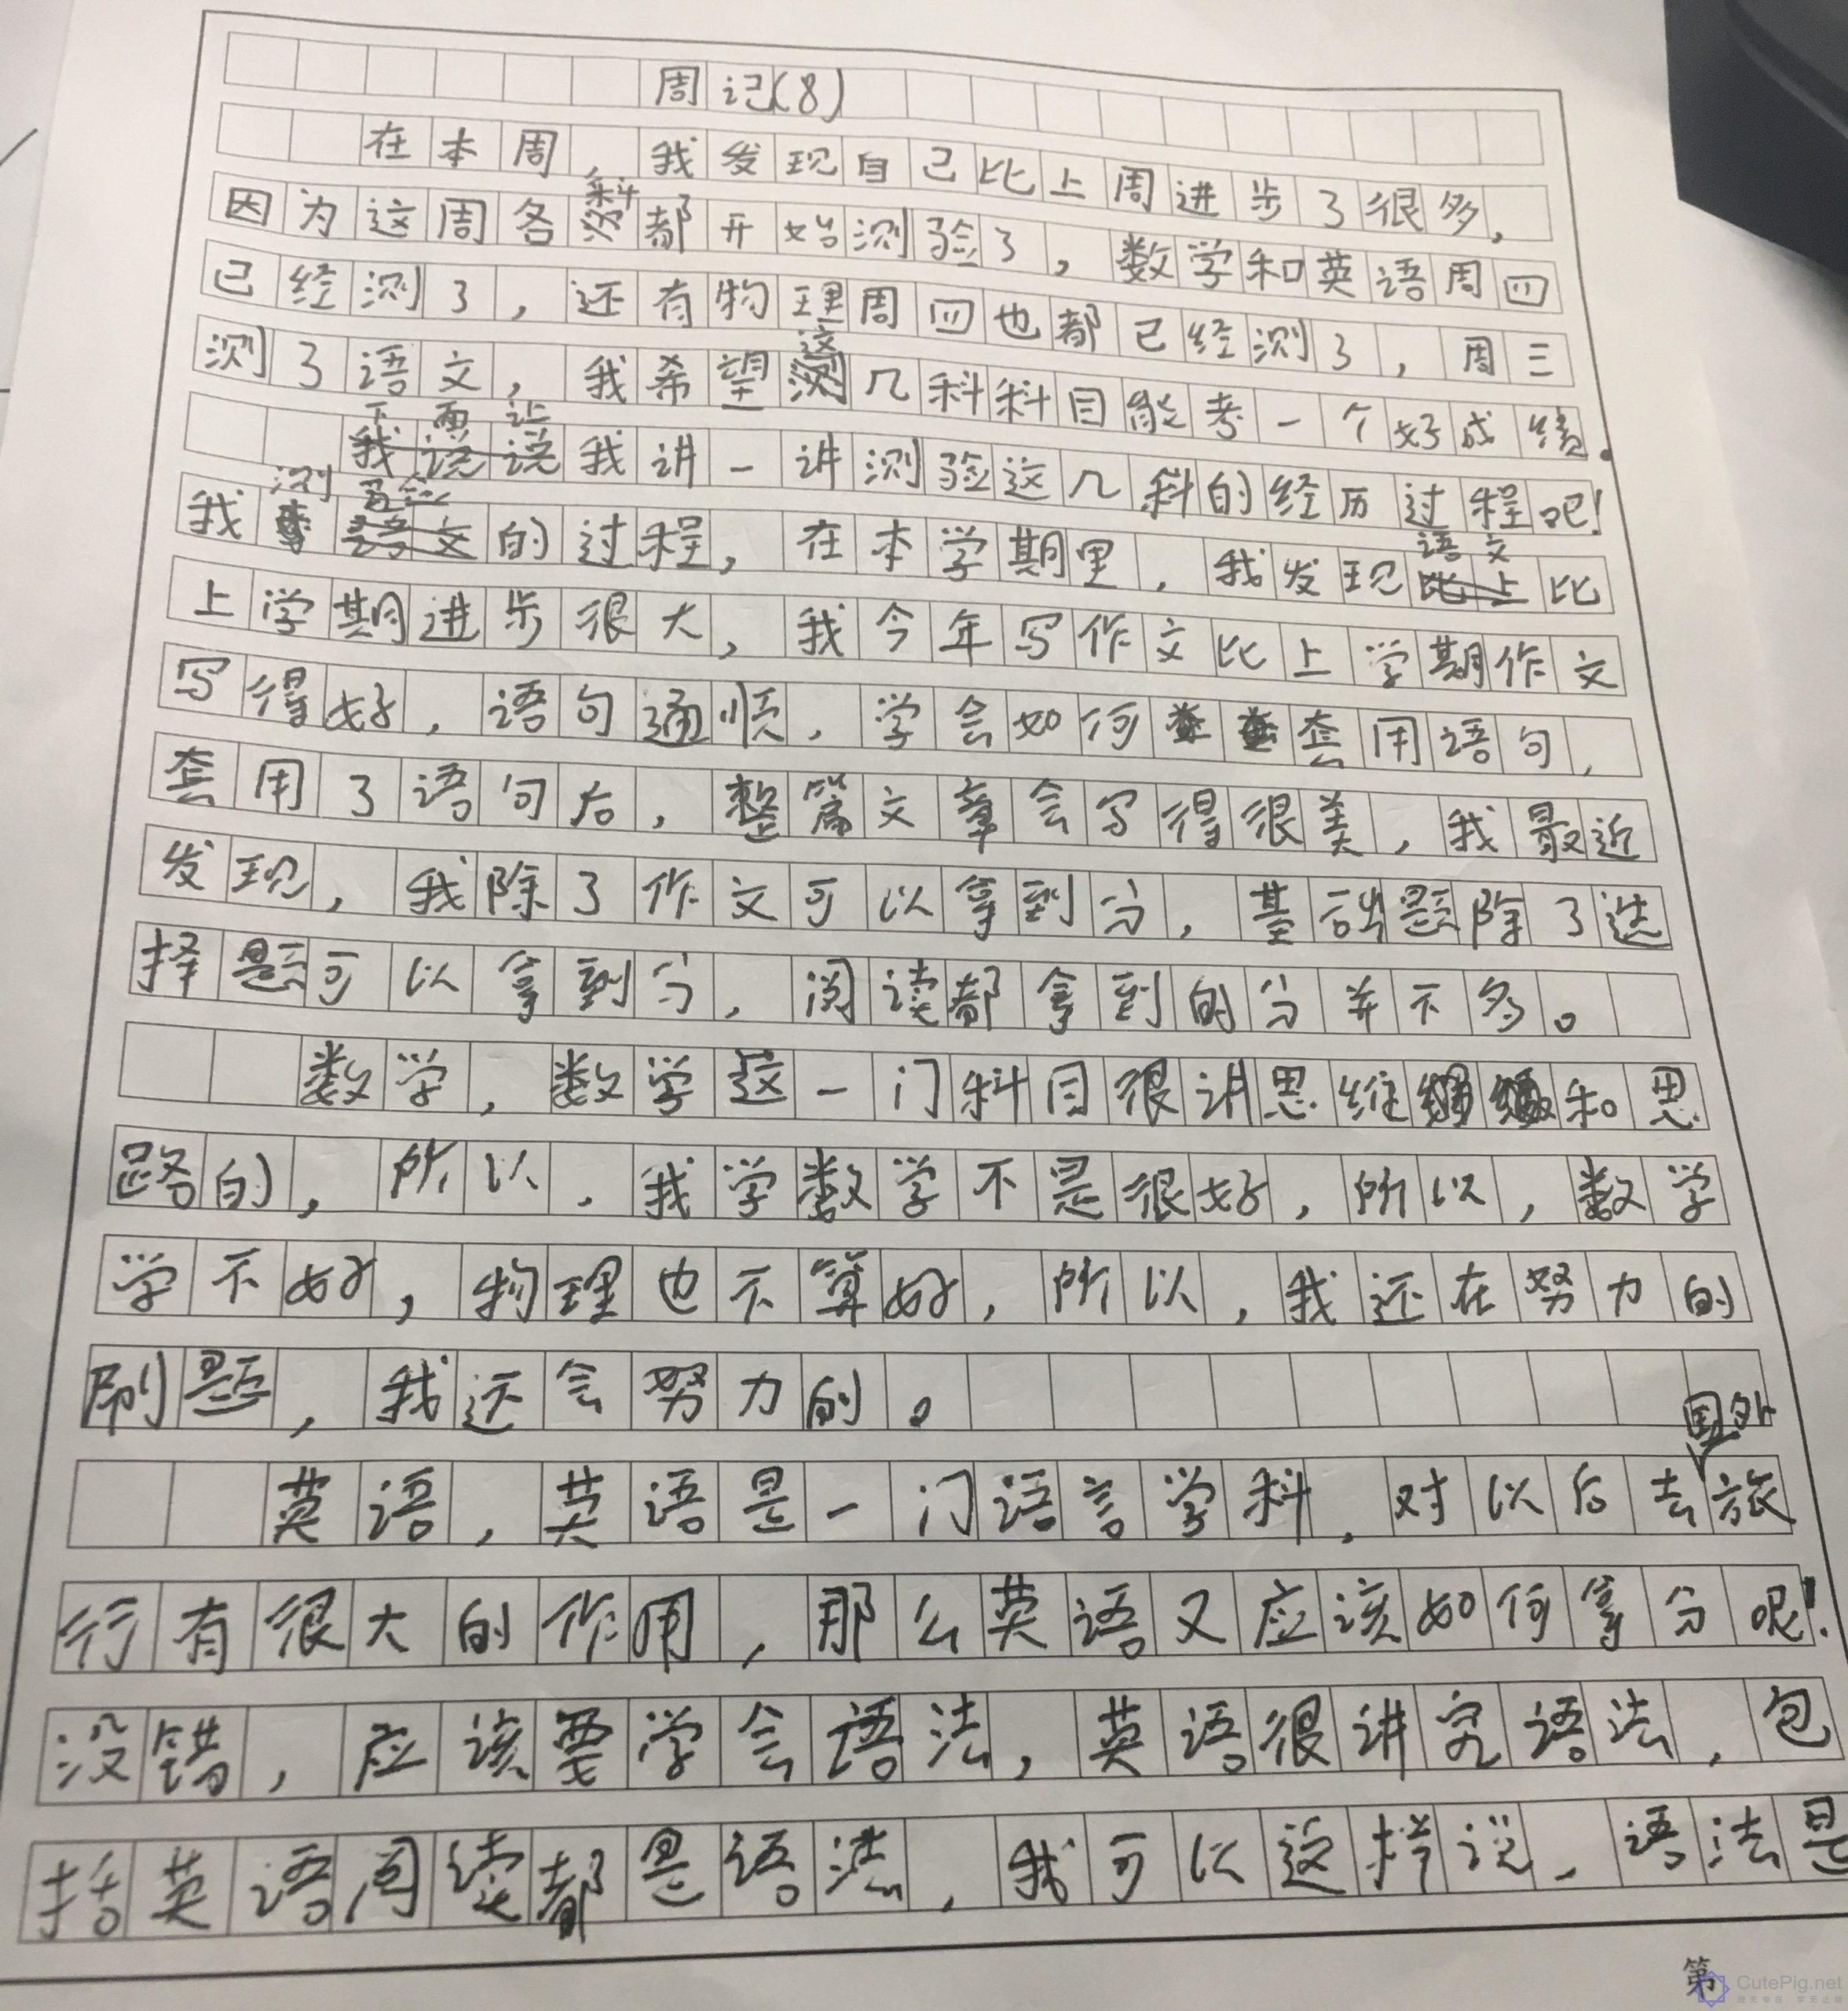 周记(8)
在本周，我发现自己比上周进步了很多，
因为这周各科都开始测验了，数学和英语周四
已经测了，还有物理周四也都已经测了，周三
测了语文，我希望这几科科目能考一个好成绩。
下面让我讲一讲测验这几科的经历过程吧！
我测的过程，在本学期里，我发现语文比
上学期进步很大，我今年写作文比上学期作文
写得好，语句通顺，学会如何套用语句，
套用了语句后，整篇文章会写得很美，我最近
发现，我除了作文可以拿到分，基础题除了选
择题可以拿到分，阅读都拿到的分并不多。
数学，数学这一门科目很讲思维和思
路的，所以，我学数学不是很好，所以，数学
学不好，物理也不算好，所以，我还在努力的
刷题，我还会努力的。
英语，英语是一门语言学科，对以后去国外旅
行有很大的作用，那么英语又应该如何拿分呢！
没错，应该要学会语法，英语很讲究语法，包
括英语阅读都是语法，我可以这样说，语法是
第
CutePig.net